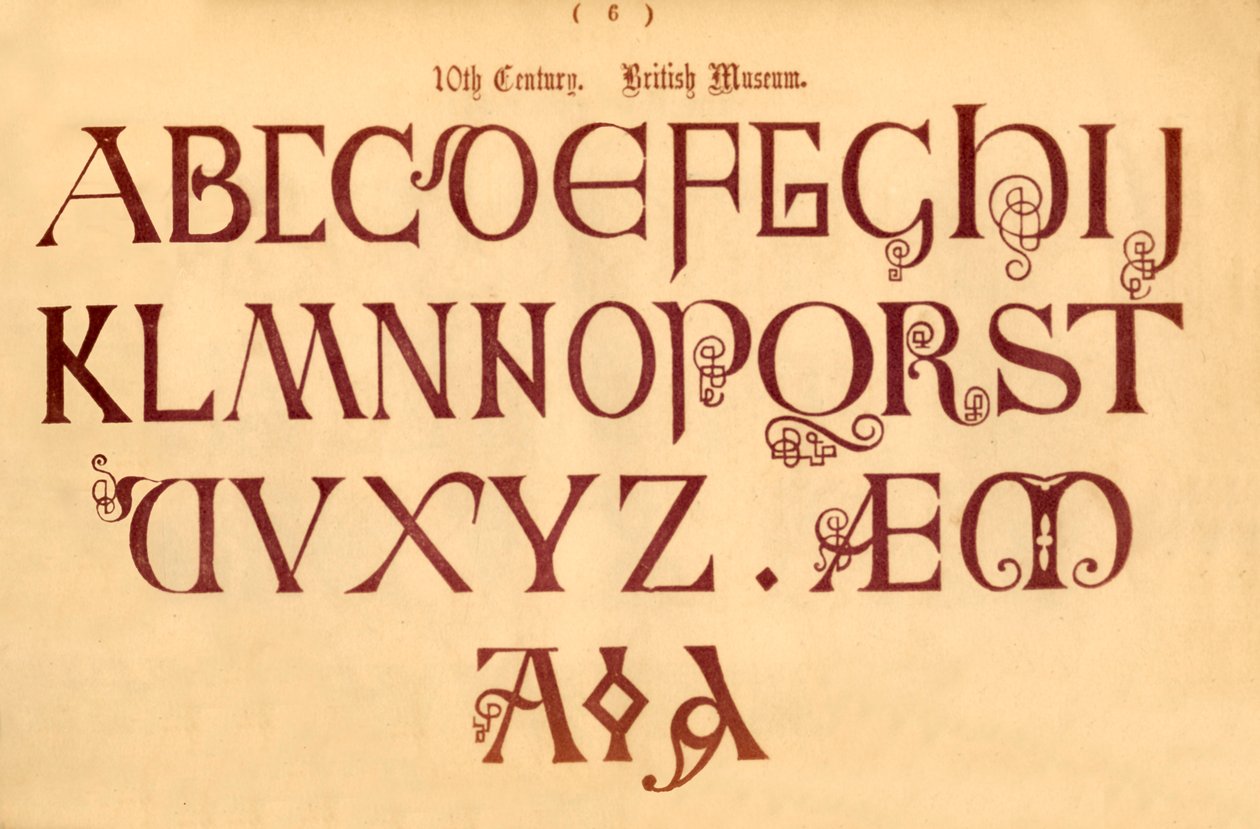 ( 6 )
10th Century. British Museum.
ABCCDEFGGhIJ
KLMNNOPQRST
UVXYZ. ÆM
A A